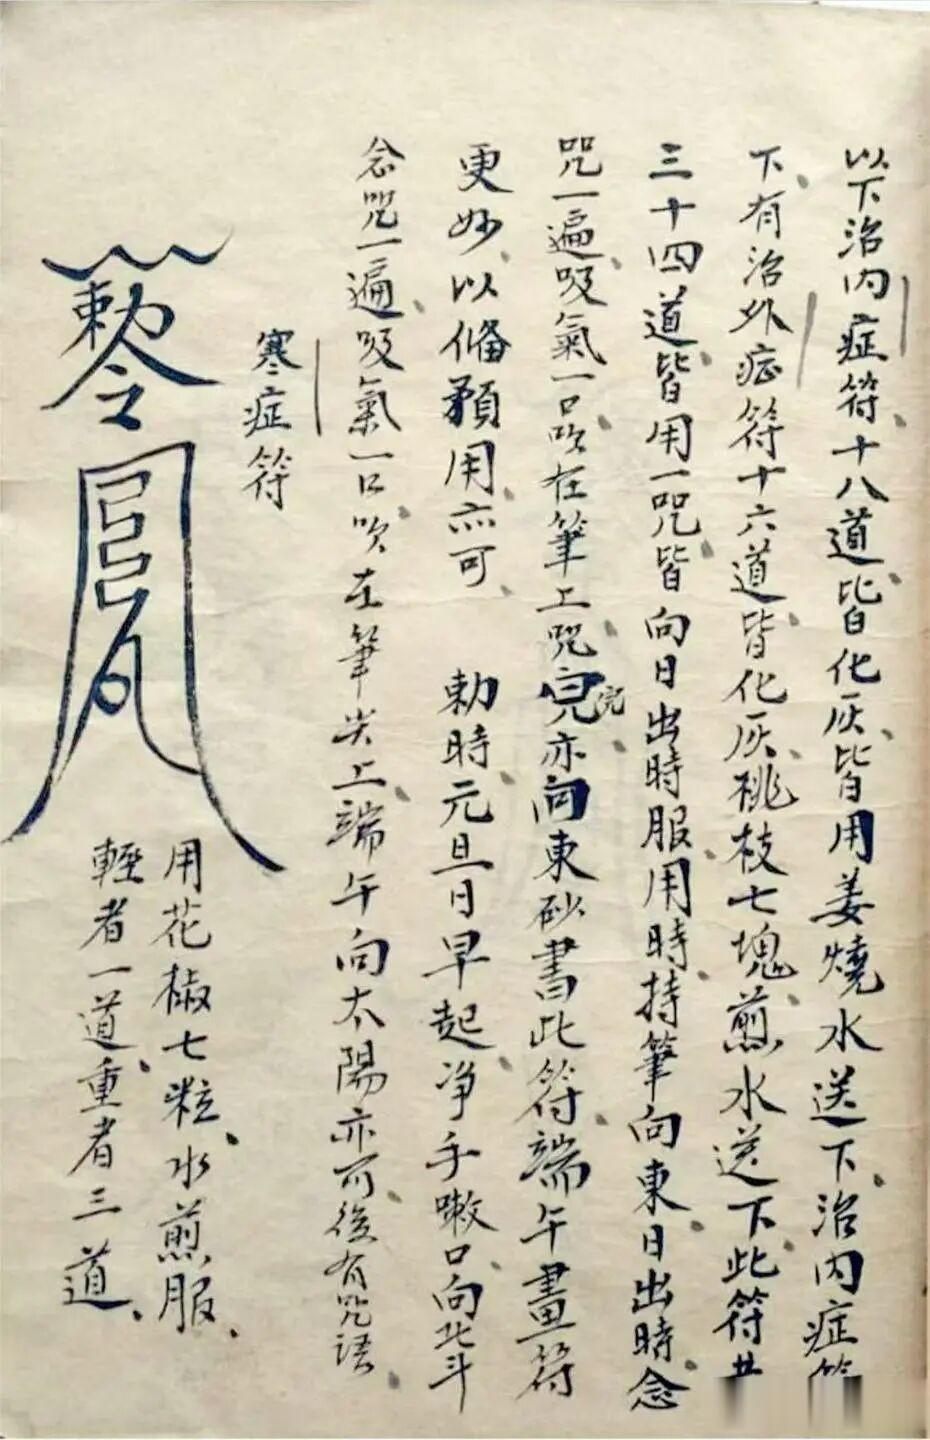 以下治内症符十八道皆化灰皆用姜燒水送下治内症符
下有治外症符十六道皆化灰桃枝七塊煎水送下此符共
三十四道皆用一咒皆向日出時服用時持筆向東日出時念
咒一遍吸氣一口吹在筆上咒完亦向東砂書此符端午畫符
更妙以俻預用亦可 勅時元旦日早起净手嗽口向北斗
念咒一遍吸氣一口吹在筆尖上端午向太陽亦可後有咒語
寒症符
用花椒七粒水煎服
輕者一道重者三道
勅令